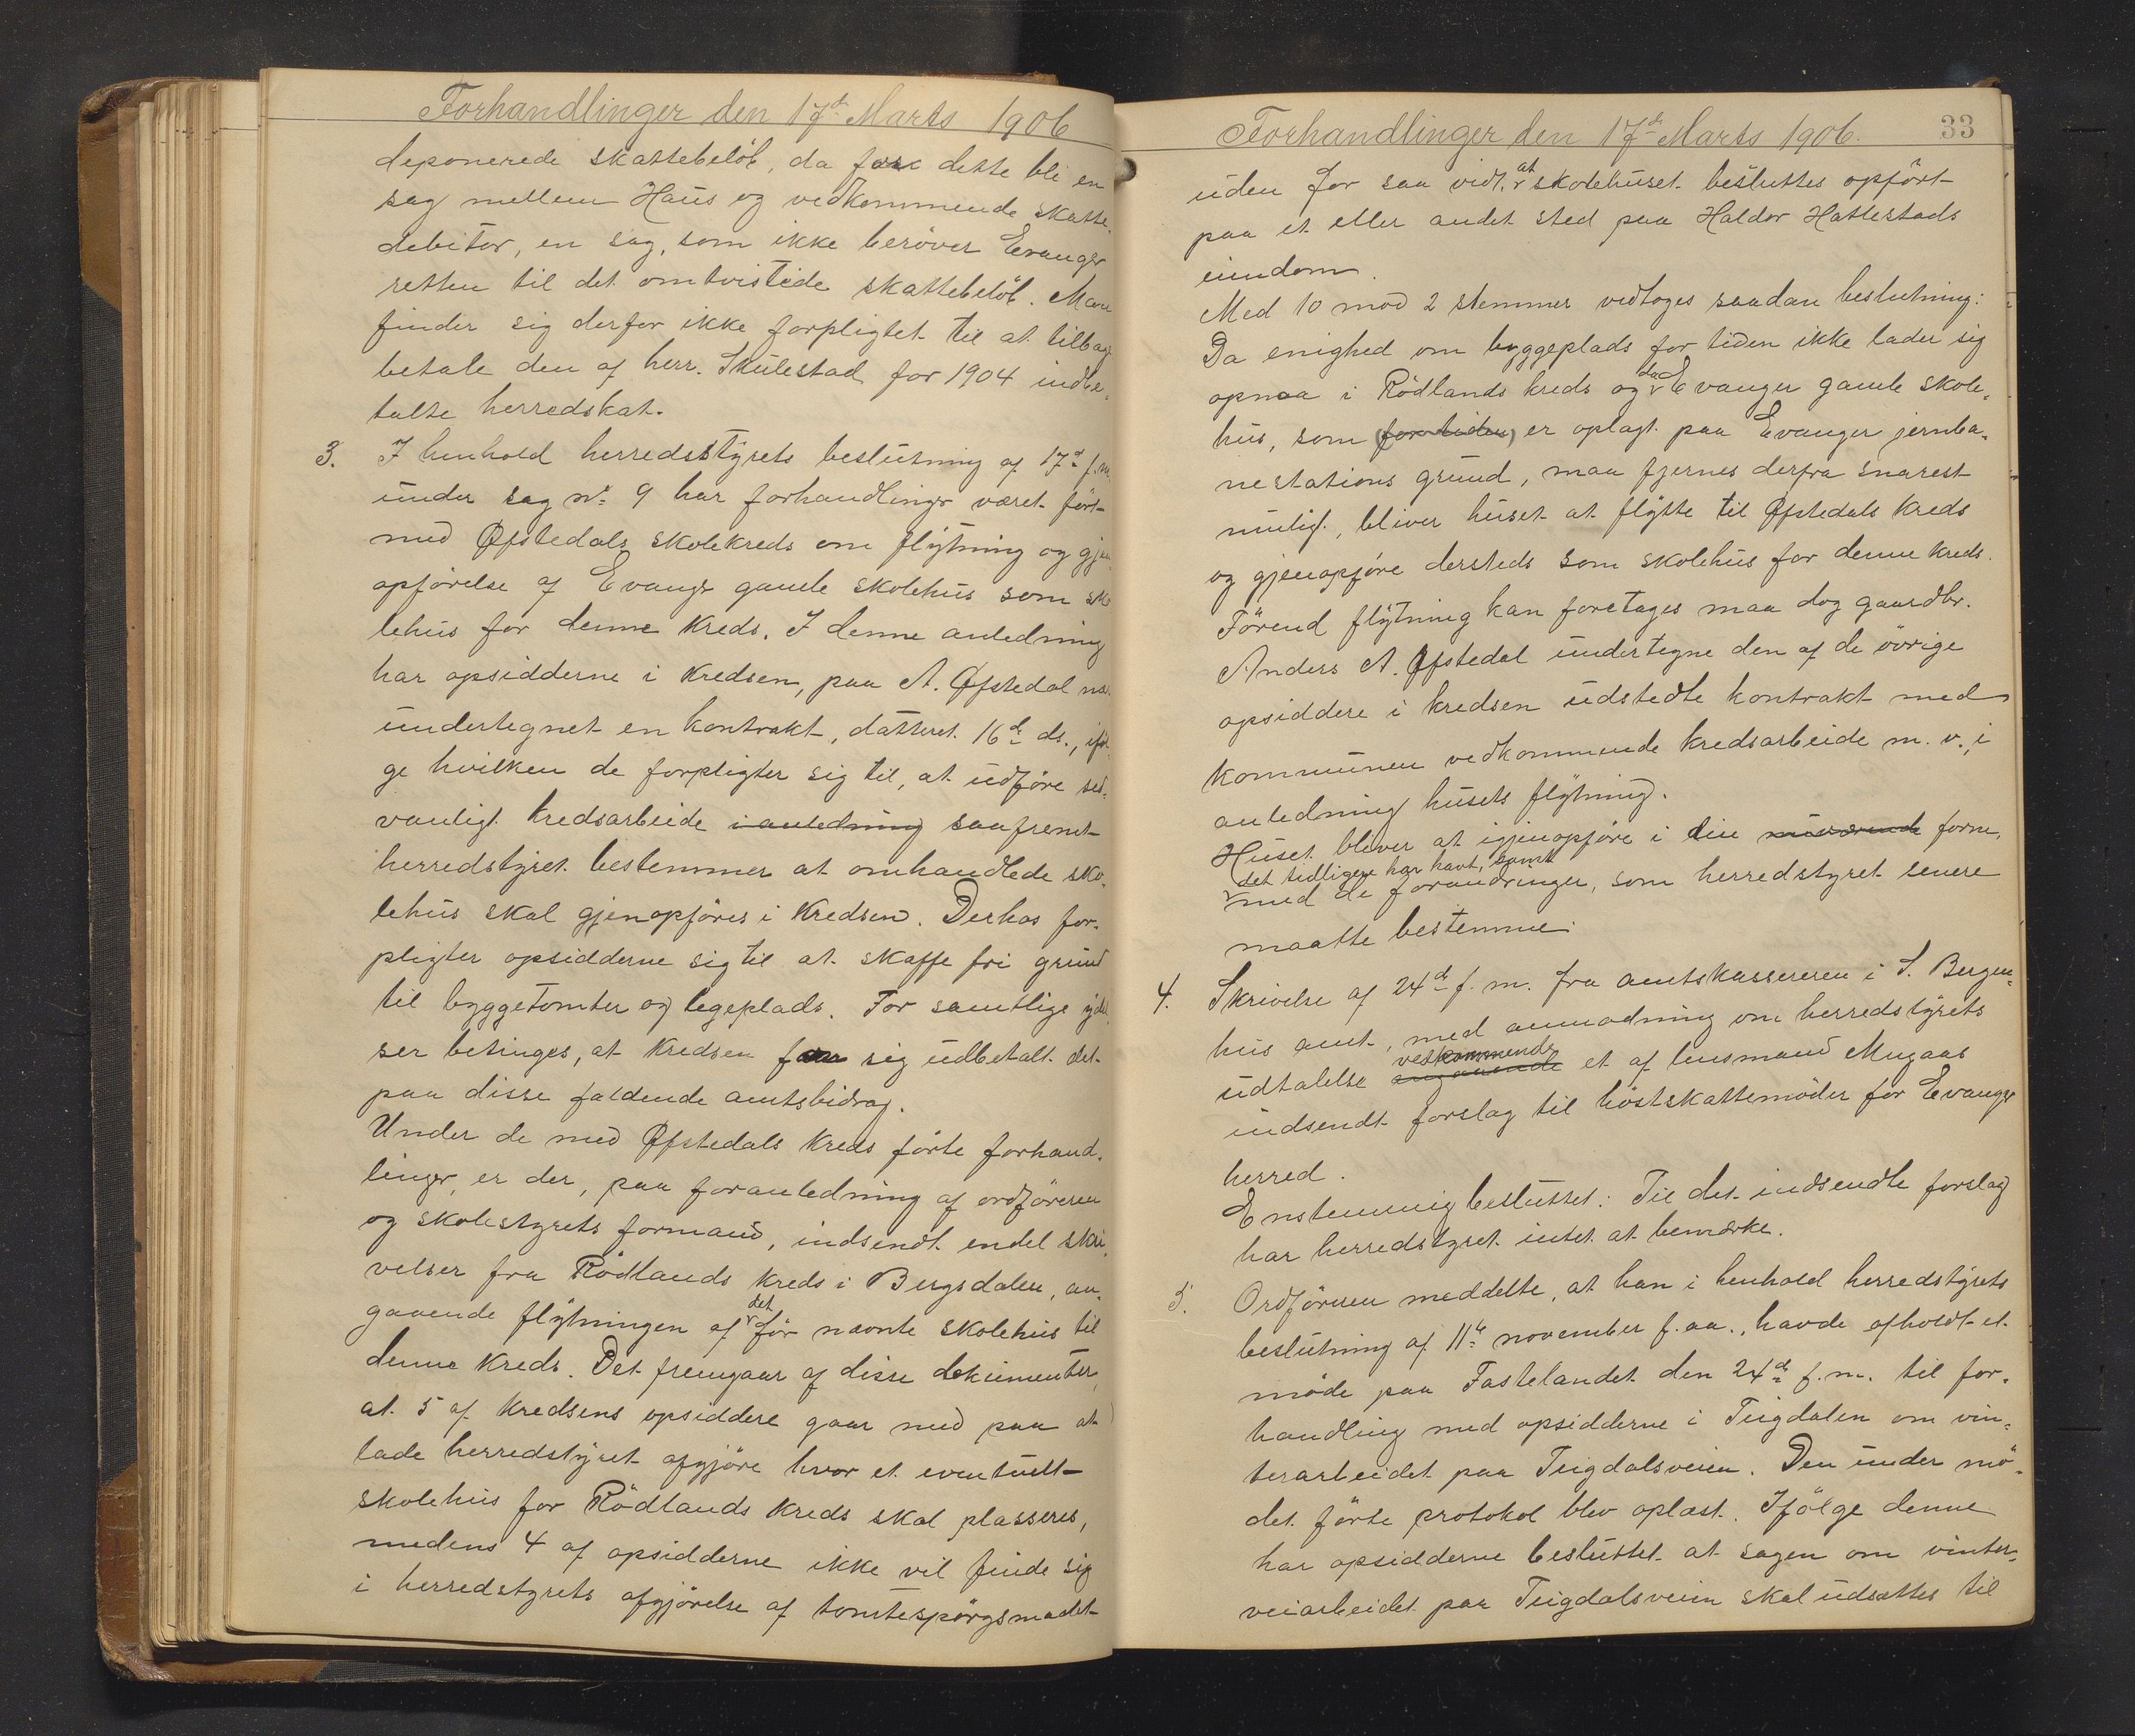 Forhandlinger den 17de Marts 1906
deponerede skattebeløb, da faar dette bli en
sag mellem Haus og vedkommende skatte-
debitor, en sag, som ikke berøver Evanger
retten til det omtvistede skattebeløb. Man
finder sig derfor ikke forpligtet til at tilbage
betale den af herr. Skulestad for 1904 indbe-
talte herredskat.
3. I henhold herredsstyrets beslutning af 17de f.m.
under sag no. 9 har forhandlinger været ført
med Øfstedals skolekreds om flytning og gjen
opførelse af Evanger gamle skolehus som sko
lehus for denne kreds. I denne anledning
har opsidderne i kredsen, paa A. Øfstedal nær
undertegnet en kontrakt, datteret 16de ds., iføl-
ge hvilken de forpligter sig til, at udføre sed-
vanligt kredsarbeide i anledning saafremt
herredstyret bestemmer at omhandlede sko-
lehus skal gjenopføres i kredsen. Derhos for-
pligter opsidderne sig til at skaffe fri grund
til byggetomter og legeplads. For samtlige ydel
ser betinges, at kredsen faar sig udbetalt det
paa disse faldende amtsbidrag.
Under de med Øfstedals kreds førte forhand-
linger, er der, paa foranledning af ordføreren
og skolestyrets formand, indsendt endel skri-
velser fra Rødlands kreds i Bergsdalen, an-
gaaende flytningen af det før nævnte skolehus til
denne kreds. Det fremgaar af disse dokumenter,
at 5 af kredsens opsiddere gaar med paa at
lade herredstyret afgjøre hvor et eventuelt
skolehus for Rødlands kreds skal plasseres,
medens 4 af opsidderne ikke vil finde sig
i herredstyrets afgjørelse af tomtespørgsmaalet
Forhandlinger den 17de Marts 1906. 33
uden for saa vidt, at skolehuset besluttes opført
paa et eller andet sted paa Haldor Hattestads
eiendom.
Med 10 mod 2 stemmer vedtoges saadan beslutning:
Da enighed om byggeplads for tiden ikke lader sig
opnaa i Rødlands kreds og da Evanger gamle skole-
hus, som (for tiden) er oplagt paa Evanger jernba-
nestations grund, maa fjernes derfra snarest
mulig, bliver huset at flytte til Øfstedals kreds
og gjenopføre dersteds som skolehus for denne kreds.
Førend flytning kan foretages maa dog gaardbr.
Anders A. Øfstedal undertegne den af de øvrige
opsiddere i kredsen udstedte kontrakt med
kommunen vedkommende kredsarbeide m. v. i
anledning husets flytning.
Huset bliver at igjenopføre i din nuværende form,
det tidligere har havt, samt
med de forandringer, som herredstyret senere
maatte bestemme.
4. Skrivelse af 24de f. m. fra amtskassereren i S. Bergen-
hus amt, med anmodning om herredstyrets
vedkommende
udtalelse angaaende et af lensmand Mugaas
indsendt forslag til høstskattemøder for Evanger
herred.
Enstemmig besluttet: Til det indsendte forslag
har herredstyret intet at bemærke.
5. Ordføreren meddelte, at han i henhold herredstyrets
beslutning af 11te november f. aa., havde afholdt et
møde paa Fastelandet den 24de f. m. til for-
handling med opsidderne i Teigdalen om vin-
terarbeidet paa Teigdalsveien. Den under mø-
det førte protokol blev oplæst. Ifølge denne
har opsidderne besluttet at sagen om vinter-
veiarbeidet paa Teigdalsveien skal udsættes til